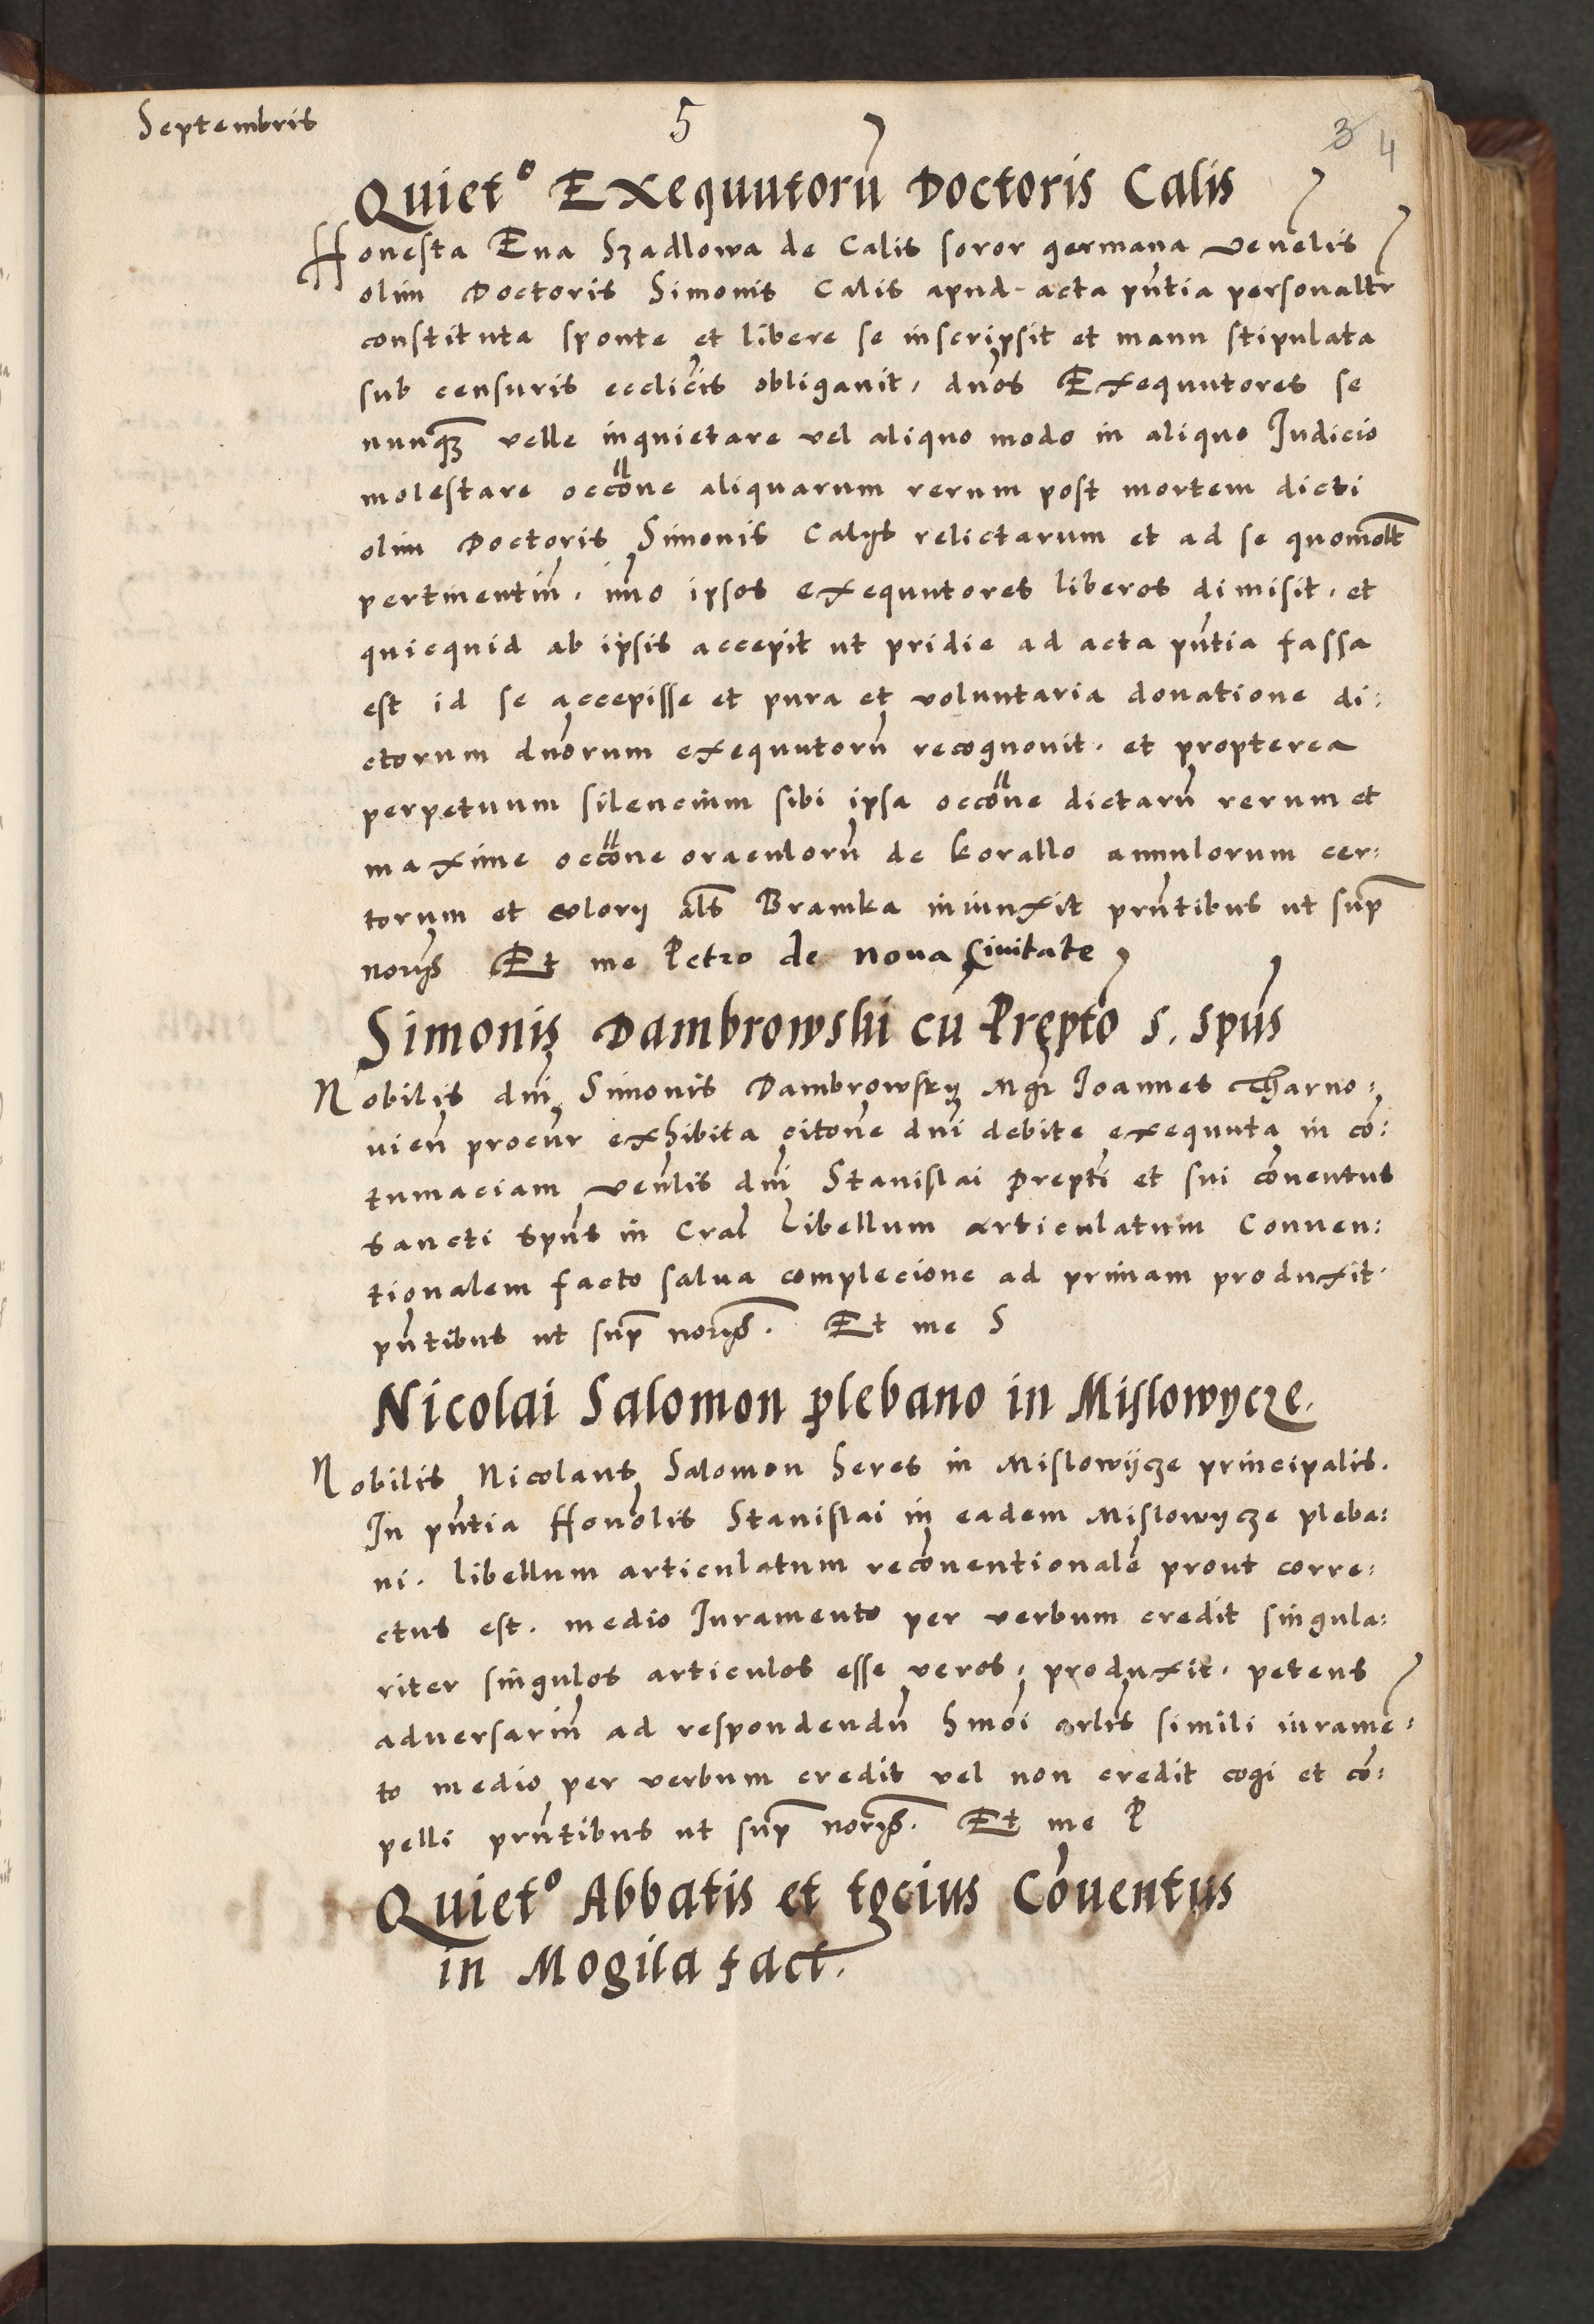 Septembris 5 3 4
Quiet° Exequutorũ Doctoris Calis
Honesta Eua Szadlowa de Calis soror germana venelis
olim Doctoris Simonis Calis apud acta pñtia personaltr
constituta sponte et libere se inscripsit et manu stipulata
sub censuris eccliẽis obligauit, duos Exequutores se
nunq̃ꝫ velle inquietare vel aliquo modo in aliquo Iudicio
molestare occõne aliquarum rerum post mortem dicti
olim Doctoris Simonis Calys relictarum et ad se quomõlt
pertinentiũ. imo ipsos exequutores liberos dimisit. et
quicquid ab ipsis accepit ut pridie ad acta pñtia fassa
est id se accepisse et pura et voluntaria donatione di:
ctorum dnorum exequutorũ recognouit. et propterea
perpetuum silencium sibi ipsa occõne dictarũ rerum et
maxime occõne oraculorũ de korallo annulorum cer:
torum et colory als Bramka iniunxit prñtibus ut sup̃
norijs Et me Petro de noua Ciuitate
Simonis Dambrowski cũ Prępto s. spũs
Nobilis dni Simonis Dambrowsky Mgr̃ Ioannes Tharno:
uieñ procur̃ exhibita citone dni debite exequuta in cõ:
tumaciam venlis dni Stanislai Prepti et sui cõuentus
sancti spũs in Cral Libellum articulatum Conuen:
tionalem facto salua complecione ad primam produxit.
pñtibus ut sup̃ norijs. Et me S
Nicolai Salomon plebano in Mislowycze.
Nobilis Nicolaus Salomon heres in Mislowÿcze principalis.
In pñtia Honolis Stanislai in eadem Mislowycze pleba:
ni. libellum articulatum recõuentionalẽ prout corre:
ctus est. medio Iuramento per verbum credit singula:
riter singulos articulos esse veros, produxit. petens
aduersariũ ad respondendũ hmõi arlis simili iuramẽ:
to medio per verbum credit vel non credit cogi et cõ:
pelli prñtibus ut sup̃ norijs. Et me P
Quiet° Abbatis et tocius Cõuentus
in Mogila fact.